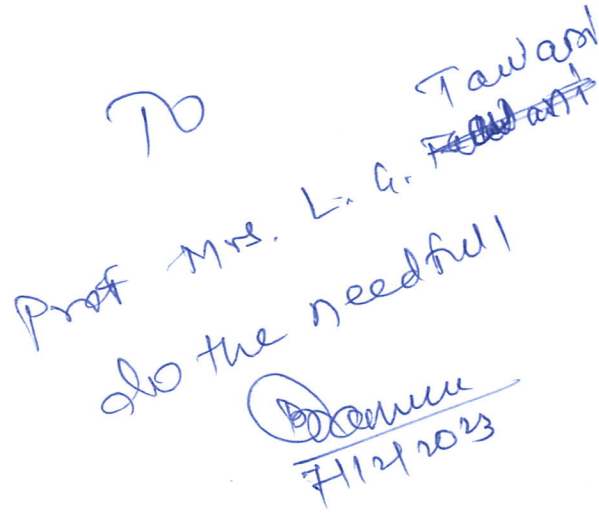 To
Prof Mrs. L. G. Tawari
do the needfull
7/12/2023